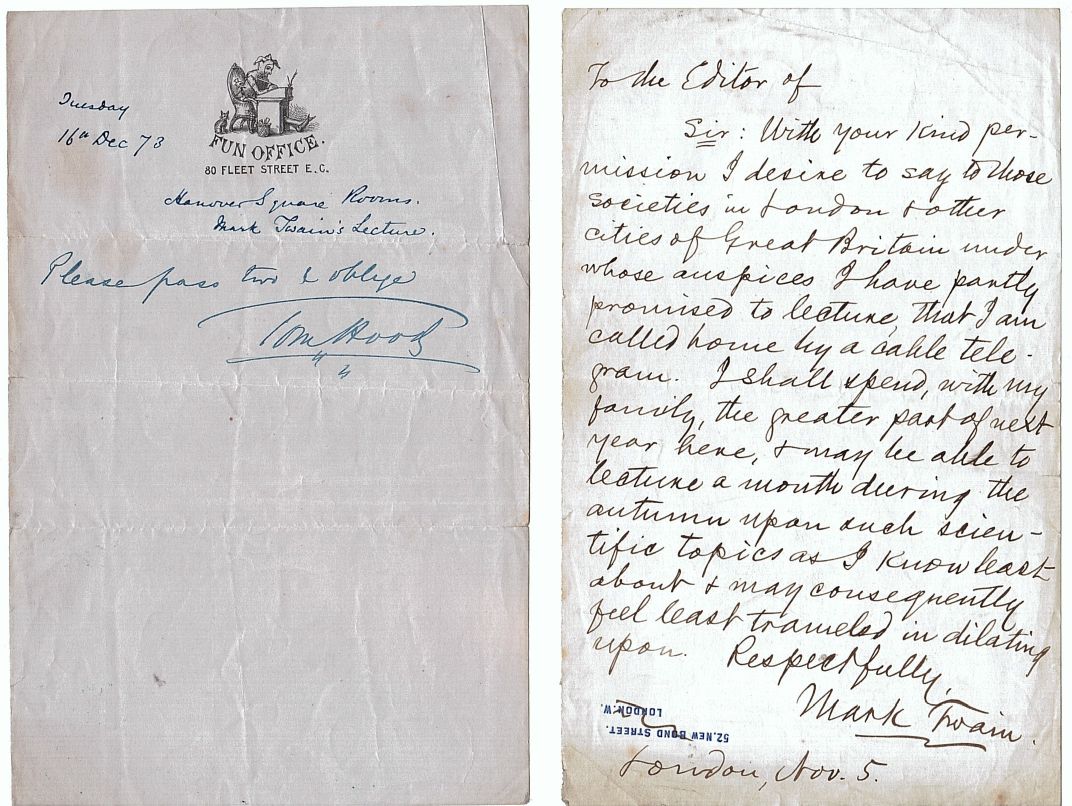 Tuesday
16th Dec 73
FUN OFFICE.
80 FLEET STREET E.C.
Hanover Square Rooms.
Mark Twain's Lecture.
Please pass two & oblige
Tom Hood
To the Editor of
Sir: With your kind per-
mission I desire to say to those
societies in London & other
cities of Great Britain under
whose auspices I have partly
promised to lecture, that I am
called home by a cable tele-
gram. I shall spend, with my
family, the greater part of next
year here, & may be able to
lecture a month during the
autumn upon such scien-
tific topics as I know least
about & may consequently
feel least trameled in dilating
upon. Respectfully,
Mark Twain.
52. NEW BOND STREET.
LONDON. W.
London, Nov. 5.